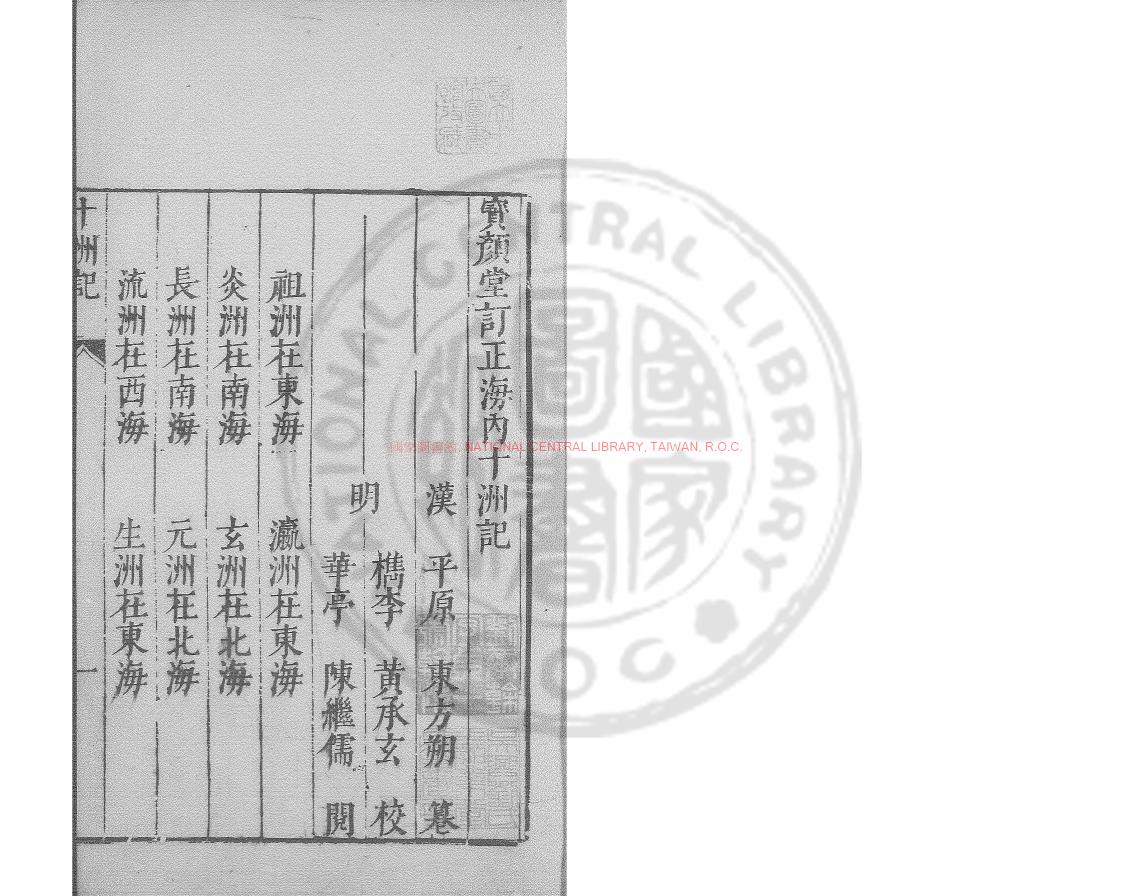 寳顏堂訂正海內十洲記
漢 平原 東方朔 纂
明 檇李 黃承玄 校
華亭 陳繼儒 閱
祖洲在東海 瀛洲在東海
炎洲在南海 玄洲在北海
長洲在南海 元洲在北海
流洲在西海 生洲在東海
十洲記 一
國家圖書館, NATIONAL CENTRAL LIBRARY, TAIWAN, R.O.C.
NATIONAL CENTRAL LIBRARY